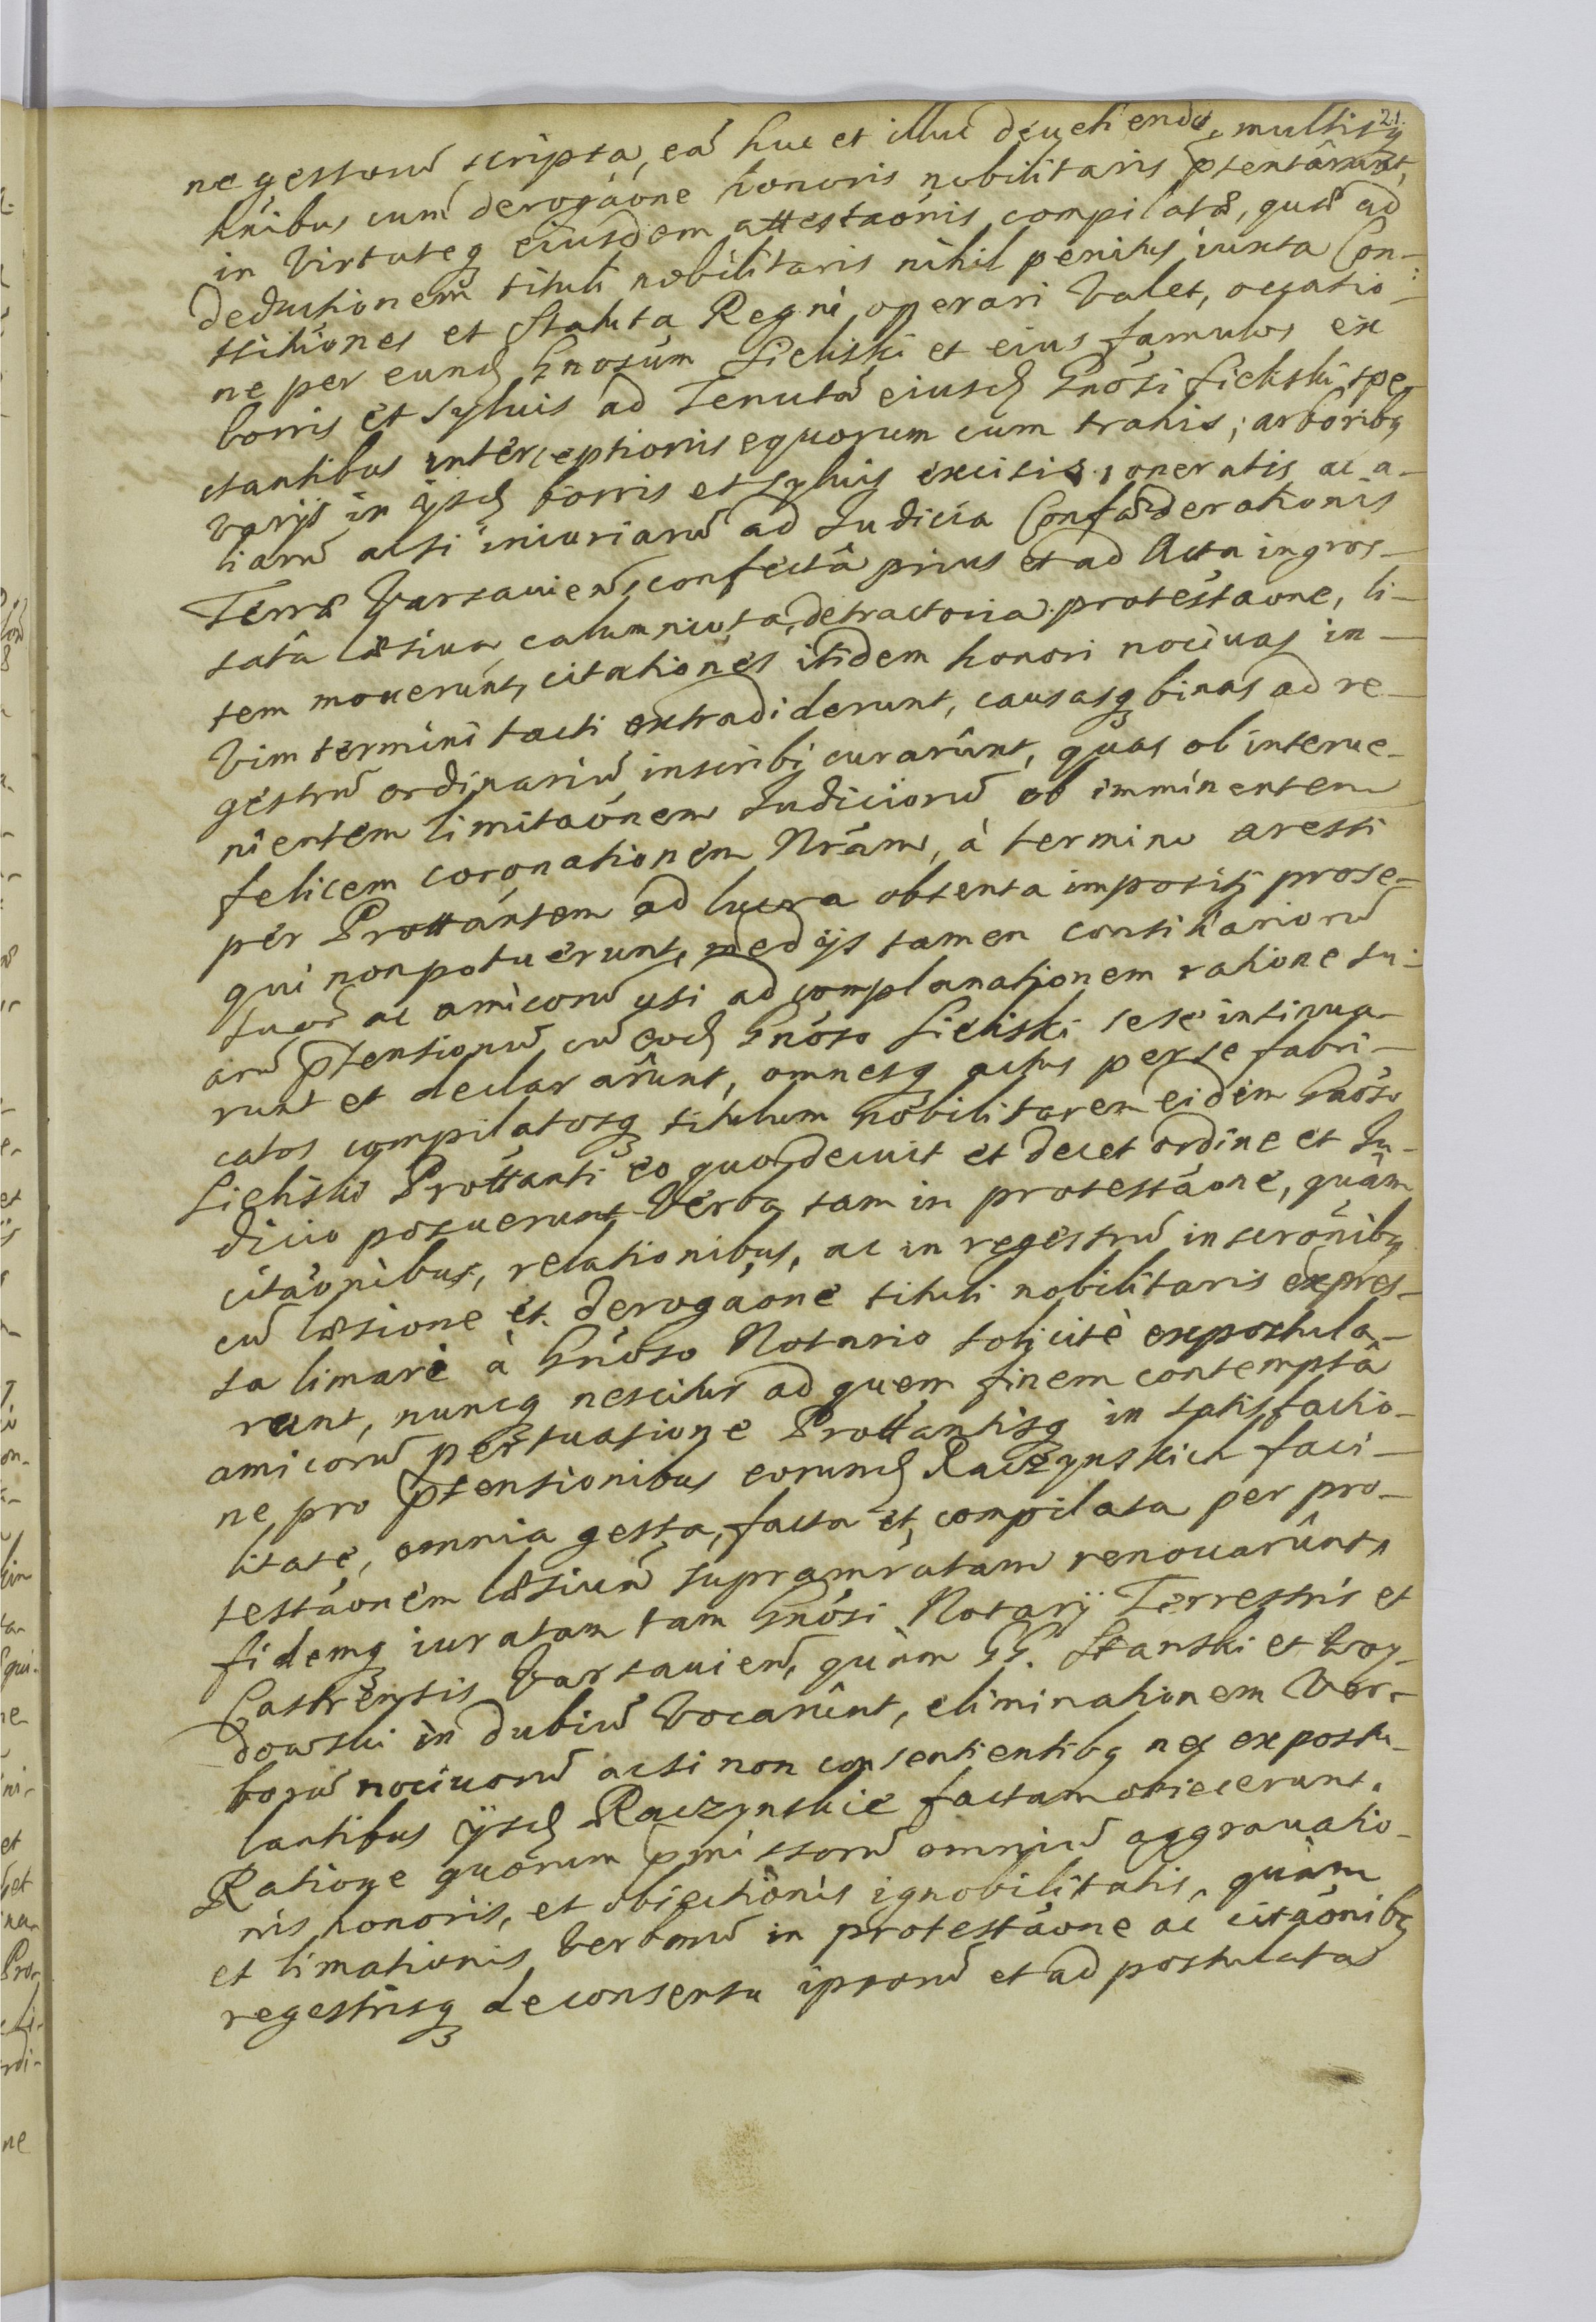 21.
ne gestorũ scripta, eã huc et illuc deuehendo, multisq̃
hnibus cum derogãone honoris nobilitaris p̃tentârunt,
in Virtuteq̃ eiusdem attestaõnis compilatã, quæ ad
deductionem tituli nobilitaris nihil penitus iuxta Con-
stitutiones et Statuta Regni operari Valet, occatio-
ne per eund̃ Gnosum Sieliski et eius famulos ex
borris et syluis ad Tenutã eiusd̃ Gnosi Sieliski spe-
ctantibus interceptionis equorum cum trahis; arboribq̃
varijs in ijsd̃ borris et syluis excisis, oneratis ac a-
liarũ acsi iniuriarũ ad Iudicia Confæderationis
Terræ Varsauieñ, confectâ prius et ad Acta ingros-
satâ læsiua, calumniosa, detractoria protestãone, li-
tem mouerunt, citationes itidem honori nociuas in
Vim termini tacti extradiderunt, causasq̃ binas ad re-
gestrũ ordinariũ inscribi curarûnt, quas ob interue-
nientem limitaõnem Iudiciorũ ob imminentem
felicem coronationem Nrãm, à termino aresti
per Prottantem ad lucra obtenta impositi prose-
qui non potuerunt, medijs tamen consiliariorũ
suorũ ac amicorũ ysi ad complanationem ratione su-
arũ p̃tensionũ cũ eod̃ Gnoso Sieliski sese insinua-
runt et declararûnt, omnesq̃ actus per se fabri-
catos compilatosq̃ titulum nobilitarem eidem Gnoso
Sieliski Prottanti eo quo decuit et decet ordine et Iu-
dicio posuerunt Verba tam in protestãone, quâm
citãonibus, relationibus, ac in regestrũ inscrõnibq̃
cũ læsione et derogãone tituli nobilitaris expres-
sa limari à Gnoso Notario solicitè expostula-
runt, nuncq̃ nescitur ad quem finem contemptâ
amicorũ persuasione Prottantisq̃ in satisfactio-
ne pro p̃tensionibus eorund̃ Raczynskich faci-
litate, omnia gesta, facta et compilata per pro-
testãonem læsiuã supramratam renouarûnt,
fidemq̃ iuratam tam Gnosi Notarÿ Terrestris et
Castrensis Varsauieñ, quàm GG. Stanski et Woy-
dowski in dubiũ Vocarûnt, eliminationem Ver-
borũ nociuorũ acsi non consentientibq̃ nec expostu-
lantibus ijsd̃ Raczynskie factam obiecerunt.
Ratione quorum p̃missorũ omniũ aggrauatio-
nis honoris, et obiectionis ignobilitatis, quàm
et limationis Verborũ in protestãone ac citãonibq̃
regestrisq̃ de consensu ipsorũ et ad postulatas